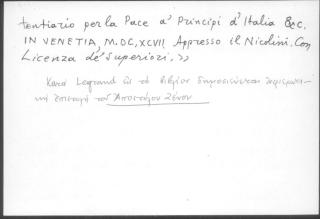 tentiario per la Pace a' Principi d'Italia &c.
IN VENETIA, M.DC,XCVII, Appresso il Nicolini. Con
Licenza de' Superiori. »
Κατά Legrand ἐν τῷ βιβλίῳ δημοσιεύεται
ἐπιστολή τοῦ Ἀποστόλου Ζένου